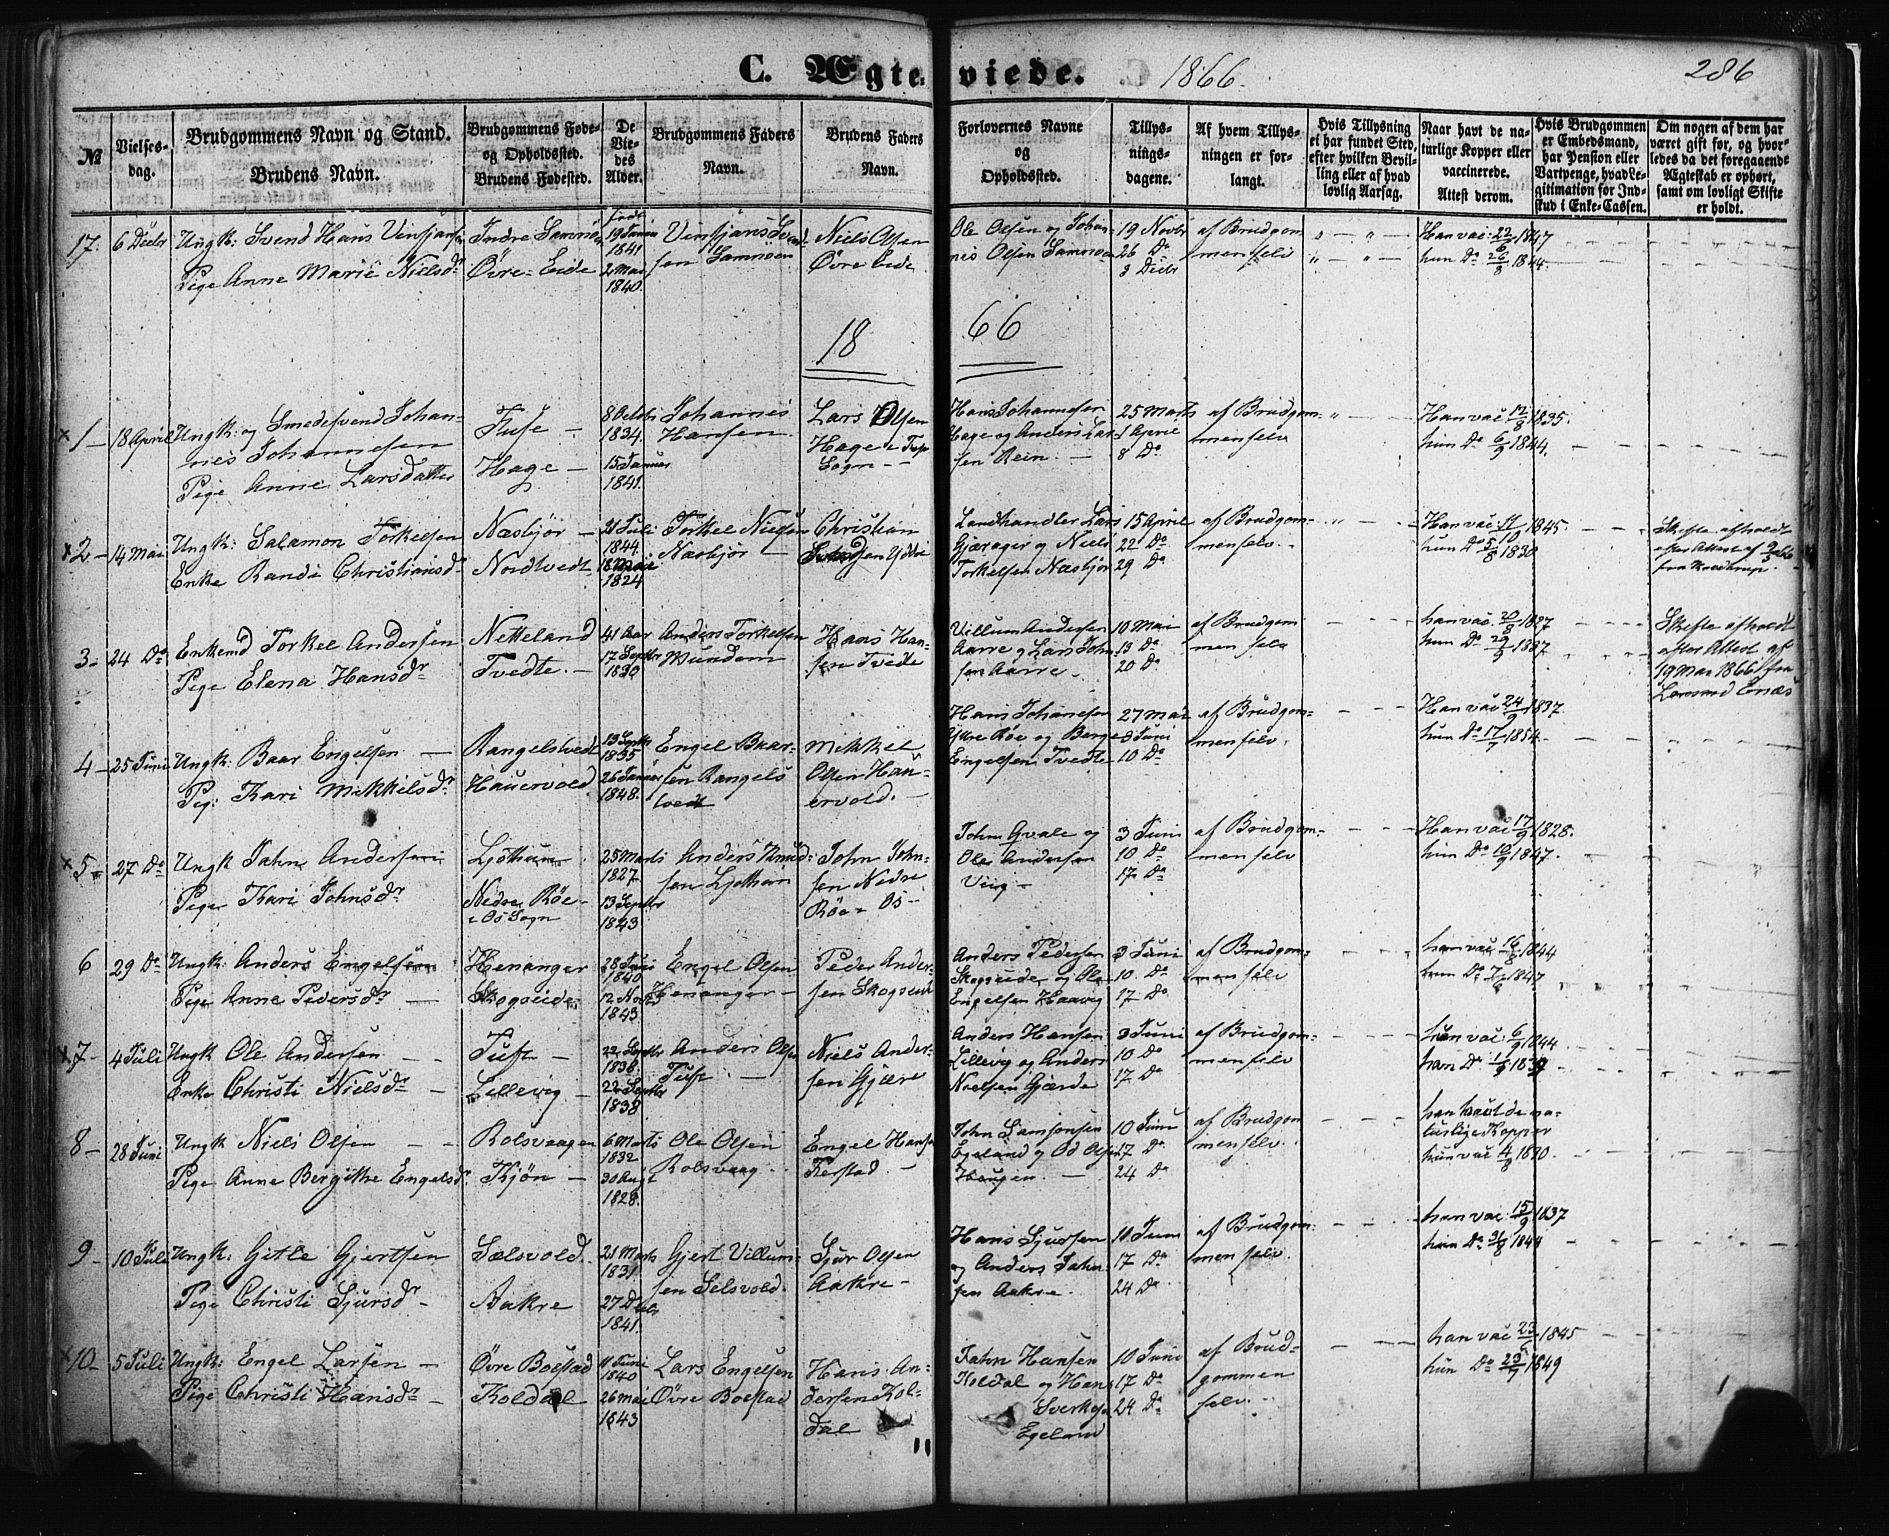 C. Ægteviede. 1866. 286
№
Vielsesdag.
Brudgommens Navn og Stand.
Brudens Navn.
Brudgommens Føde- og Opholdssted.
Brudens Fødested.
De Viedes Alder.
Brudgommens Faders Navn.
Brudens Faders Navn.
Forlovernes Navne og Opholdssted.
Tillysningsdagene.
Af hvem Tillysningen er forlangt.
Hvis Tillysning ei har fundet Sted, efter hvilken Bevilling eller af hvad lovlig Aarsag.
Naar havt de naturlige Kopper eller vaccinerede. Attest derom.
Hvis Brudgommen er Embedsmand, har Pension eller Vartpenge, hvad Legitimation for Indskud i Enke-Cassen.
Om nogen af dem har været gift før, og hvorledes da det foregaaende Ægteskab er ophørt, samt om lovligt Skifte er holdt.
17. 6 Decbr
Ungk: Svend Hans
Indre Samnøen
1841
Niels Olsen
Ole Olsen og Johan-
19 Novbr
af Brudgom
Han vac: 22/6 1847
Pige Anne Marie Nielsdr
Øvre Eide
2 Mai
1840.
sen Samnøen
Øvre Eide
nis Olsen Samnøen
26 Do
3 Decbr
men selv
hun Do 26/8 1844.
18 66
1 - 18 April
Ungk: og Smedesvend Johan-
nes Johannesen
Pige Anne Larsdatter
Tufe -
Hage -
8 Octbr
1834.
15 Januar
1841.
Johannes
Hansen.
Lars Olsen
Hage i
Sogn -
Hans Johannesen
Hage og Anders Lar-
sen Rein. -
25 Marts
1 April
8 Do
af Brudgom-
men selv
Han vac 12/8 1835.
hun Do 6/9 1844.
2 - 14 Mai
Ungk: Salamon Torkelsen
Enke Randi Christiansdr
Næsbjør -
Nordtvedt
21 Juli
1844
18 Mai
1824
Torkel Nielsen
Næsbjør -
Christian
Landhandler Lars
Gjærager og Niels
Torkelsen Næsbjør
15 April
22 Do
29 Do
af Brudgom-
men selv. -
Han vac 11/10 1845.
hun Do 5/8 1830
Skifte afholdt
efter Attest af
3 - 24 Do
Enkemd Torkel Andersen
Pige Elena Hansdr
Netteland
Tvedte -
41 Aar
17 Septbr
1830
Anders Torkelsen
Mundem
Hans Han-
sen Tvedte
Villum Andersen
Aarre og Lars John-
sen Aarre -
10 Mai
13 Do
20 Do
af Brudgom
men selv
han vac: 20/8 1827
hun Do 29/9 1837
Skifte afholdt
efter Attest af
19 Mai 1866 fra
4 - 25 Juni
Ungk: Baar Engelsen -
Pig: Kari Mikkelsdr
Rangelstvedt
Hauervold.
13 Septbr
1835
26 Januar
1848.
Engel Baar-
sen Rangels
tvedt
Mikkel
Olsen Hau-
ervold. -
Hans Johanesen
Ytre Røe og Berge
Engelsen Tvedte
27 Mai
3 Juni
10 Do
af Brudgom-
men selv.
Han vac 24/9 1837.
hun Do 17/7 1854.
5 - 27 Do
Ungk Jahn Andersen
Pige Kari Johnsdr
Ljotheim
Nedre Røe -
i Os Sogn
25 Marts
1827
13 Septbr
1843
Anders Knud-
sen Ljotheim
John John-
sen Nedre
Røe i Os -
John Qvale og
Ole Andersen
3 Juni
10 Do
17 Do
af Brudgom-
men selv
Han vac 17/9 1828.
hun Do 10/9 1847.
6 29 Do
Ungk: Anders Engelsen
Pige Anne Pedersdr -
Henanger
Skogseide
28 Juni
1840
12 Novbr
1843
Engel Olsen
Henanger -
Peder Ander-
sen Skogseide
Anders Pedersen
Skogseide og Ole
Engelsen Haavig
3 Juni
10 Do
17 Do
af Brudgom-
men selv
han vac 16/8 1844
hun Do 7/6 1847
7 - 4 Juli
Ungk Ole Andersen - -
Enke Christi Nielsdr -
Tufe -
Lillevig -
22 Septbr
1838
22 Septbr
1838
Anders Olsen
Tufe -
Niels Ander-
sen Gjære
Anders Hansen
Lillevig og Anders
Nielsen Gjærde
3 Juni
10 Do
17 Do
af Brudgom-
men selv
hun vac 6/9 1844
8 - 28 Juni
Ungk Niels Olsen - -
Pige Anne Bergithe Engelsdr
Rolsvaagen
Kjøn -
6 Marts
1832
30 Augt
1828.
Ole Olsen
Rolsvaag.
Engel Hansen
John Samsonsen
Egeland og Od Olsen
Haugen. -
10 Juni
17 Do
24 Do
af Brudgom
men selv.
han havt de na-
turlige Kopper
hun vac 4/8 1830
9 - 10 Juli
Ungk: Gitle Gjertsen
Pige Christi Sjursdr -
Sælsvold.
Aakre
21 Marts
1831.
27 Decbr
1841.
Gjert Villum-
sen Selsvold.
Sjur Olsen
Aakre -
Hans Sjursen
og Anders Jahn-
sen Aakre.
10 Juni
17 Do
24 Do
af Brudgom-
men selv.
han vac 15/9 1837
hun Do 1844
10 - 5 Juli
Ungk: Engel Larsen -
Pige Christi Hansdr -
Øvre Bolstad
Koldal
11 Juni
1840
26 Mai
1843
Lars Engelsen
Øvre Bolstad
Hans An-
dersen Kol-
dal
Jahn Hansen
Koldal og Hans
Egeland
10 Juni
17 Do
24 Do
af Brud-
gommen
selv. -
han vac 23/6 1845
hun Do 23/9 1849